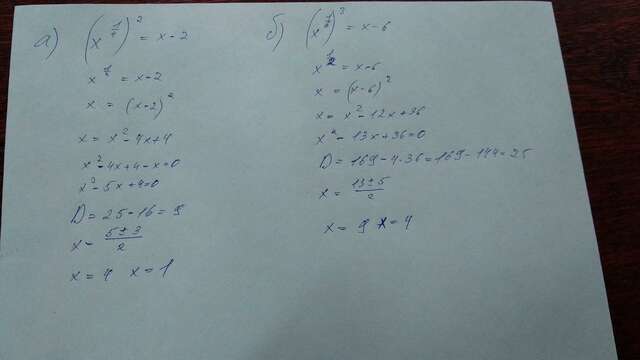 а) (x^(1/4))^2 = x-2
x^(1/2) = x-2
x = (x-2)^2
x = x^2-4x+4
x^2-4x+4-x=0
x^2-5x+4=0
D = 25-16 = 9
x = (5±3)/2
x = 4 x = 1
б) = x-6
x^(1/2) = x-6
x = (x-6)^2
x = x^2-12x+36
x^2-13x+36=0
D = 169-4·36=169-144=25
x = (13±5)/2
x = 9 x = 4